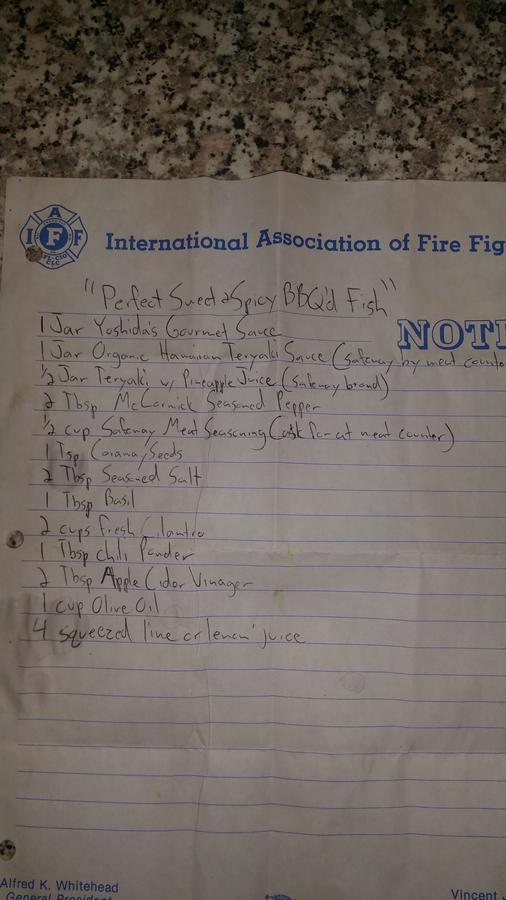 A
I F F
AFL-CIO
CLC
International Association of Fire Fig
"Perfect Sweet & Spicy BBQ'd Fish"
NOTE
1 Jar Yoshida's Gourmet Sauce
1 Jar Organic Hawaiian Teryaki Sauce (Safeway by meat counte
1/2 Jar Teryaki w/ Pineapple Juice (Safeway brand)
2 Tbsp McCormick Seasoned Pepper
1/2 cup Safeway Meat Seasoning (ask for at meat counter)
1 Tsp Seeds
2 Tbsp Seasoned Salt
1 Tbsp Basil
2 cups fresh Cilantro
1 Tbsp chili Powder
2 Tbsp Apple Cidor Vinager
1 cup Olive Oil
4 squeezed lime or lemon juice
Alfred K. Whitehead
General President
Vincent